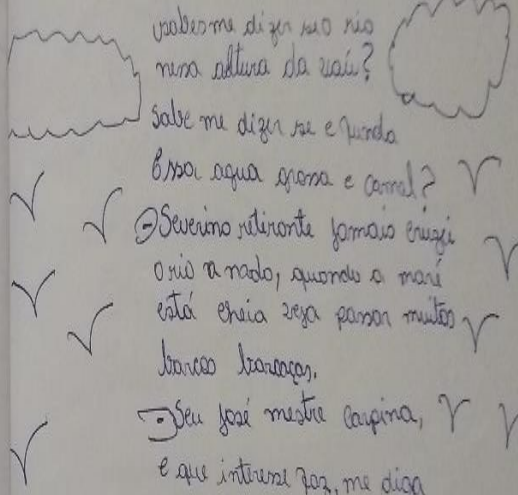 sabes me dizer se o rio
nesa altura da vaú?
sabe me dizer se e funda
Essa agua grosa e carnal?
- Severino retirante jamais cruzei
o rio a nado, quando a maré
está cheia veja pasar muitos
barcos barcaças.
- Seu José mestre carpina,
e que interese faz, me diga